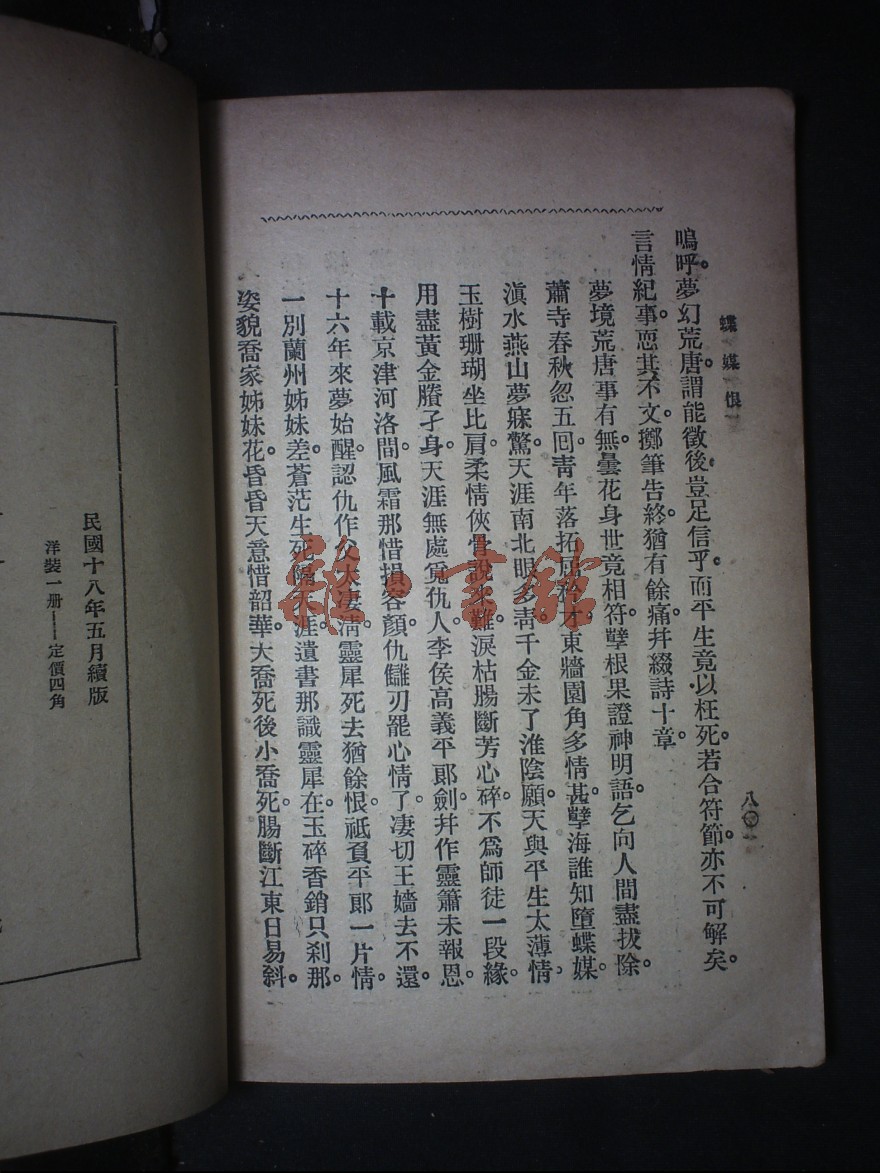 蝶媒恨
八〇
嗚呼。夢幻荒唐。謂能徵後。豈足信乎。而平生竟以枉死。若合符節。亦不可解矣。
言情紀事。恧其不文。擲筆告終。猶有餘痛。幷綴詩十章。
夢境荒唐事有無。曇花身世竟相符。孽根果證神明語。乞向人間盡拔除。
蕭寺春秋忽五回。靑年落拓屈才。東牆園角多情甚。孽海誰知墮蝶媒。
滇水燕山夢寐驚。天涯南北眼多靑。千金未了淮陰願。天與平生太薄情。
玉樹珊瑚坐比肩。柔情俠骨說來難。淚枯腸斷芳心碎。不爲師徒一段緣。
用盡黃金賸孑身。天涯無處覓仇人。李侯高義平郞劍。幷作靈簫未報恩。
十載京津河洛間。風霜那惜損容顏。仇讎刃罷心情了。凄切王嬙去不還。
十六年來夢始醒。認仇作父太凄淸。靈犀死去猶餘恨。祗負平郞一片情。
一別蘭州姊妹差。蒼茫生死隔天涯。遺書那識靈犀在。玉碎香銷只刹那。
姿貌喬家姊妹花。昏昏天意惜韶華。大喬死後小喬死。腸斷江東日易斜。
民國十八年五月續版
洋裝一册——定價四角